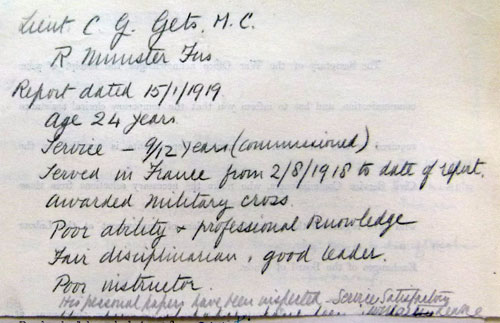 Lieut C. G. Gets, M.C.
R Munster Fus
Report dated 15/1/1919
Age 24 years
Service – 9/12 years (commissioned)
Served in France from 2/8/1918 to date of report.
Awarded Military Cross.
Poor ability & professional knowledge
Fair disciplinarian, good leader.
Poor instructor
His personal papers have been inspected. Service Satisfactory